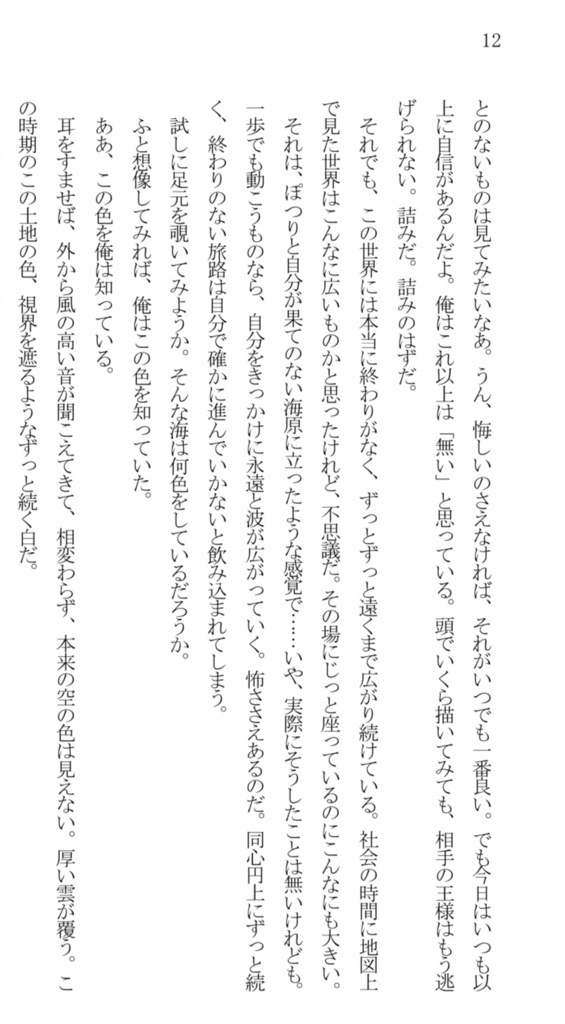 12
とのないものは見てみたいなあ。うん、悔しいのさえなければ、それがいつでも一番良い。でも今日はいつも以
上に自信があるんだよ。俺はこれ以上は「無い」と思っている。頭でいくら描いてみても、相手の王様はもう逃
げられない。詰みだ。詰みのはずだ。
それでも、この世界には本当に終わりがなく、ずっとずっと遠くまで広がり続けている。社会の時間に地図上
で見た世界はこんなに広いものかと思ったけれど、不思議だ。その場にじっと座っているのにこんなにも大きい。
それは、ぽつりと自分が果てのない海原に立ったような感覚で……いや、実際にそうしたことは無いけれども。
一歩でも動こうものなら、自分をきっかけに永遠と波が広がっていく。怖ささえあるのだ。同心円上にずっと続
く、終わりのない旅路は自分で確かに進んでいかないと飲み込まれてしまう。
試しに足元を覗いてみようか。そんな海は何色をしているだろうか。
ふと想像してみれば、俺はこの色を知っていた。
ああ、この色を俺は知っている。
耳をすませば、外から風の高い音が聞こえてきて、相変わらず、本来の空の色は見えない。厚い雲が覆う。こ
の時期のこの土地の色、視界を遮るようなずっと続く白だ。